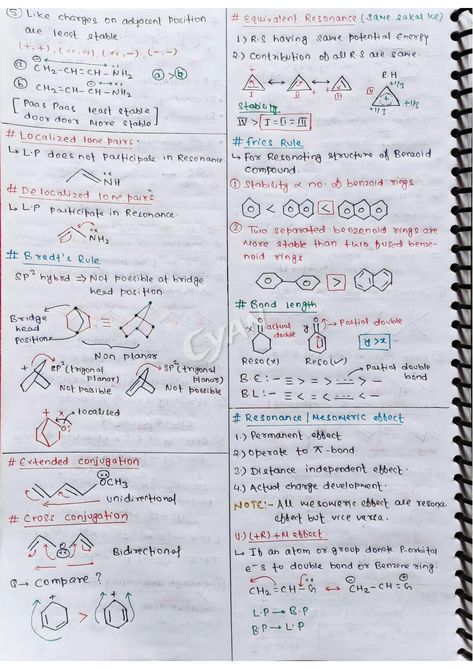 ⑤ Like charges on adjacent position
are least stable.
(+,+), (-,-)
ⓐ CH₂-CH=CH-NH₂
ⓐ > ⓑ
ⓑ CH₂=CH-CH-NH₂
[Paas Paas least stable
door door more stable]
# Localized lone pairs.
↳ L.P does not participate in Resonance
NH
# Delocalized lone pairs
↳ L.P participate in Resonance.
NH₂
# Bredt's Rule
SP² hybrd ⇒ Not possible at bridge
head position.
Bridge
head
positions
Non planar
SP² (trigonal
planar)
Not possible
SP² (trigonal
planar)
Not possible
localised
# Extended conjugation
OCH₃
unidirectional
# Cross conjugation
Bidirectional
Q → Compare ?
>
# Equivalent Resonance (same sakal ke)
1.) R.S having same potential energy
2.) Contribution of all R.S are same.
I
II
III
R H
+1/3
+1/3
+1/3
IV
Stability
IV > I = II = III
# fries Rule
↳ For Resonating structure of Benzoid
compound.
① Stability ∝ no. of benzoid rings
< <
② Two separated benzenoid rings are
more stable than two fused benze-
noid rings
>
# Bond length
O
actual
double
O
Partial double
y > x
Reso(x)
Reso(✓)
Partial double
bond
B.E:- ≡ > = > ⋯ > -
B.L:- ≡ < = < ⋯ < -
# Resonance / Mesomeric effect
1.) Permanent effect
2.) Operate to π-bond.
3.) Distance independent effect.
4.) Actual charge development.
NOTE:- All mesomeric effect are resona
effect but vice versa.
(1.) (+R) +M effect
↳ If an atom or group donate P-orbital
e⁻s to double bond or Benzene ring.
CH₂=CH-G ↔ CH₂-CH=G
L.P → B.P
B.P → L.P
CYAN